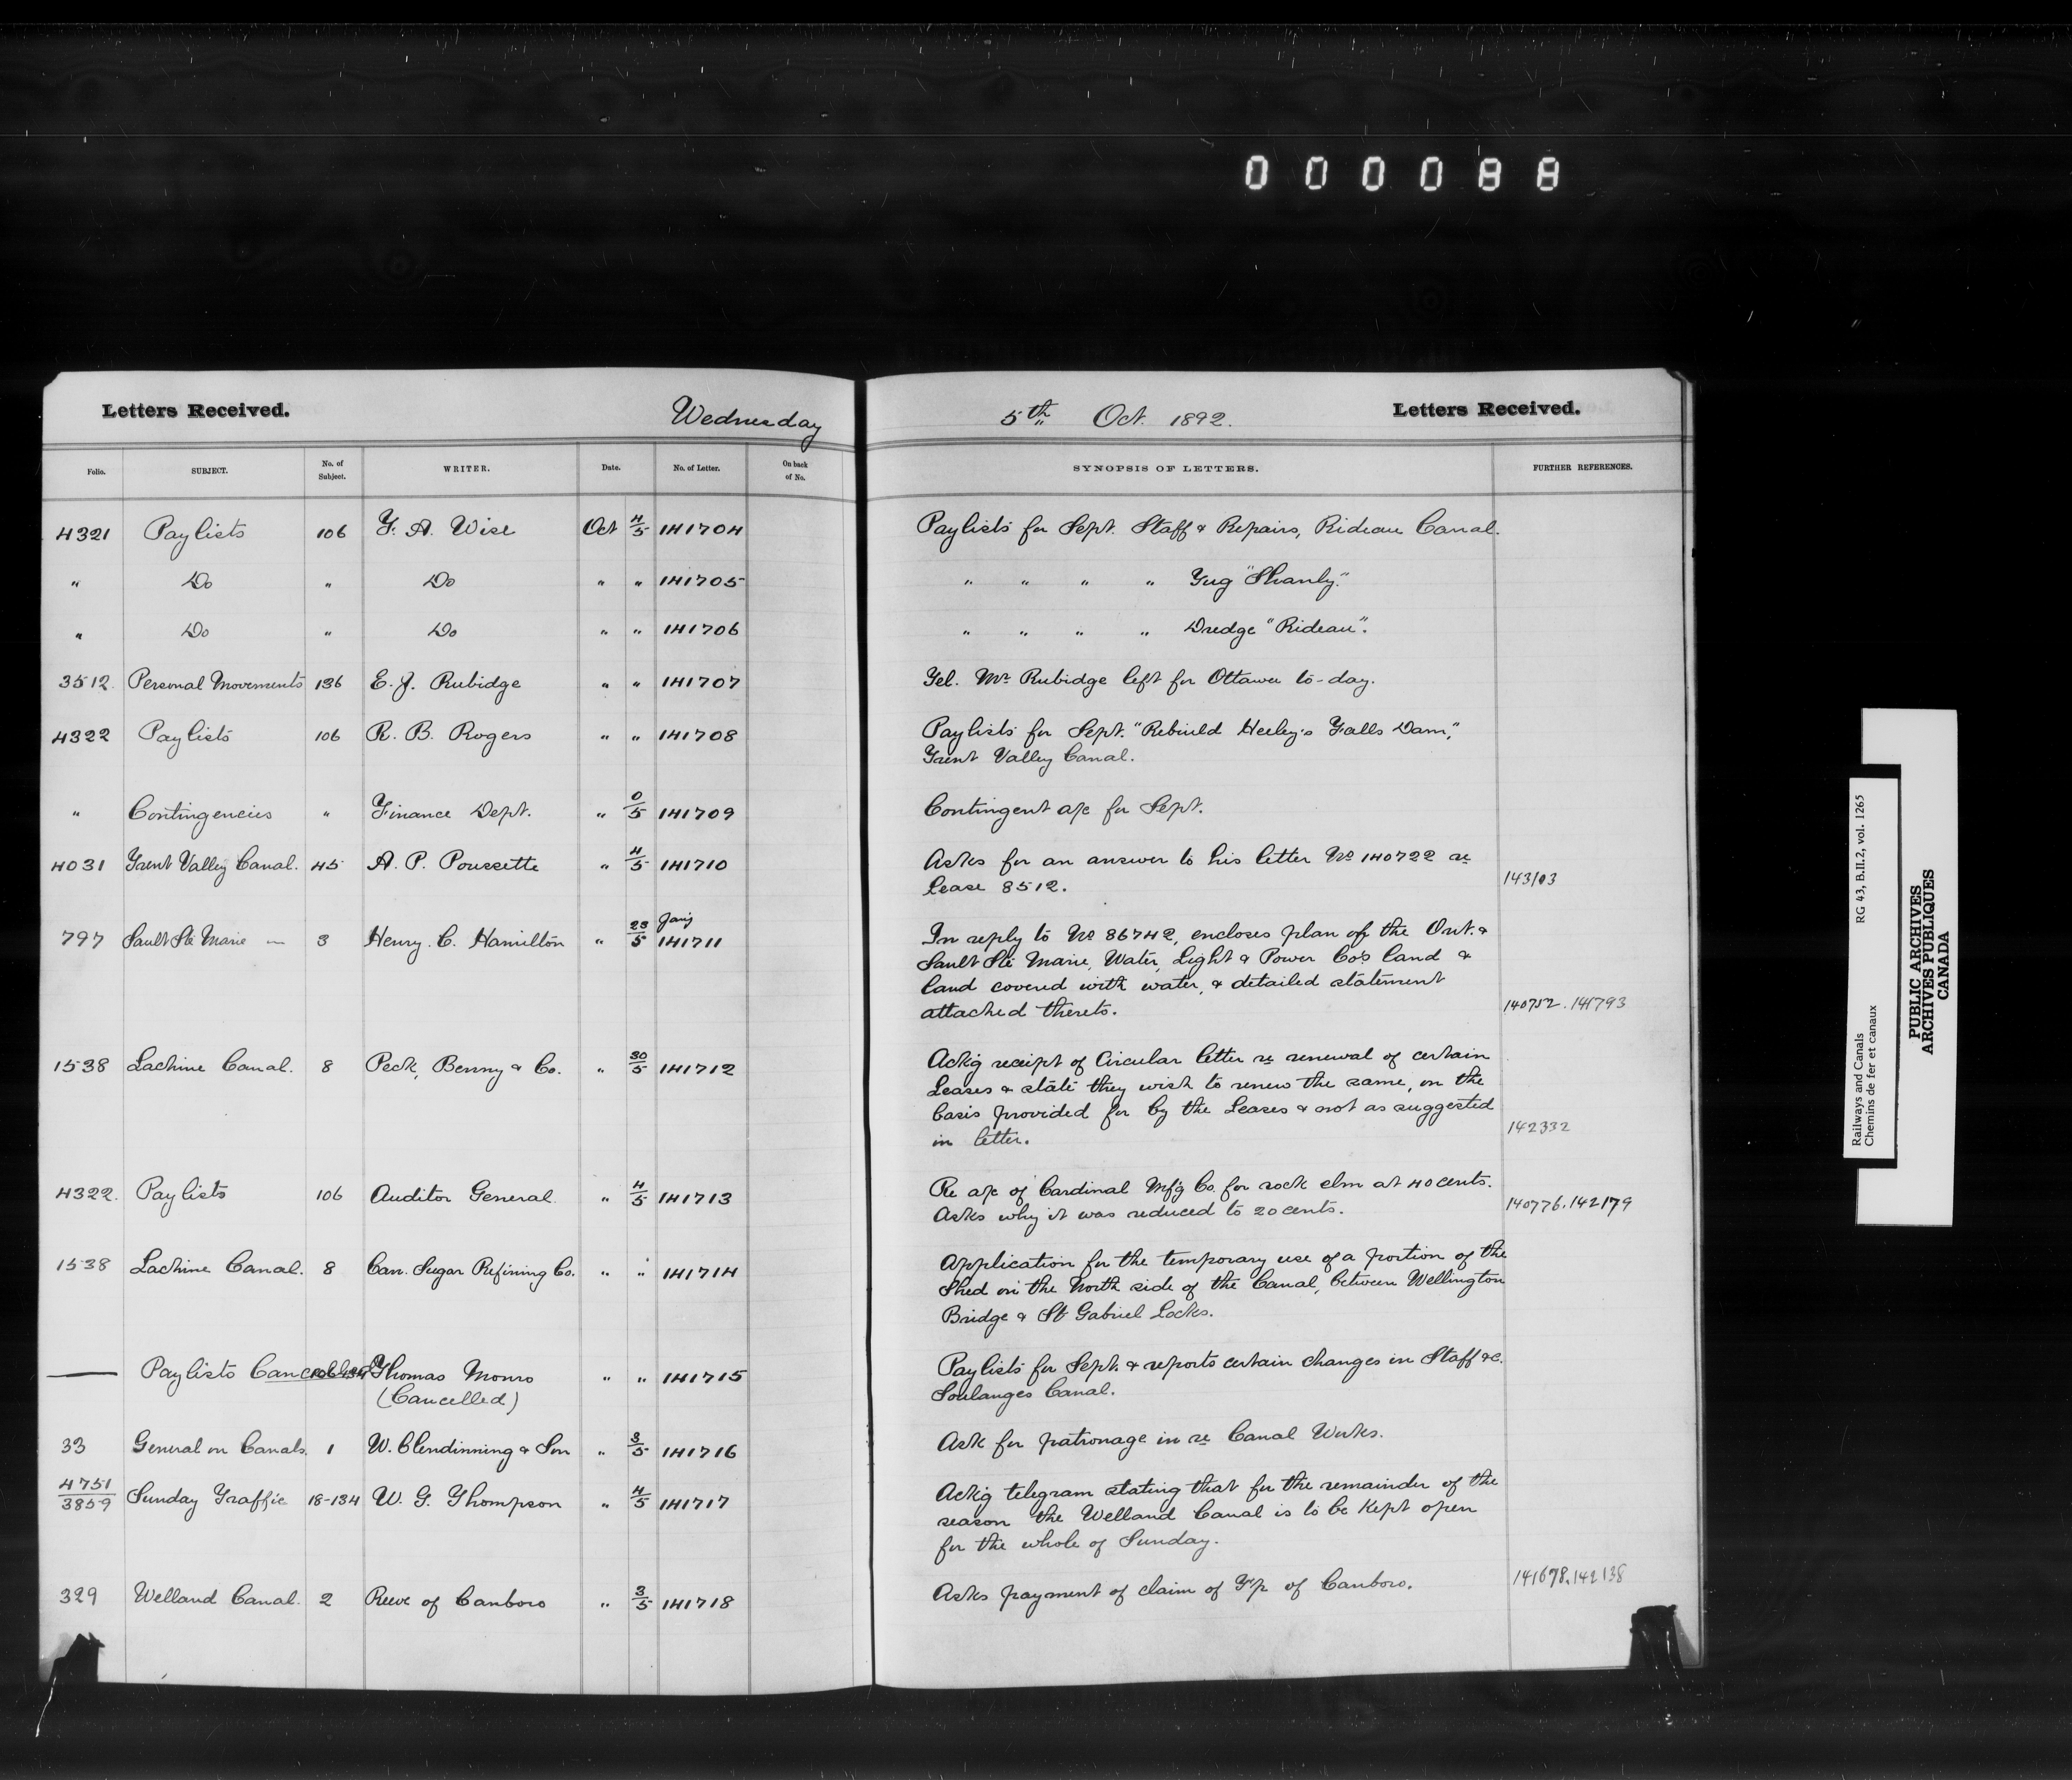 000088
Letters Received. Wednesday 5th Oct. 1892. Letters Received.
Folio. SUBJECT. No. of Subject. WRITER. Date. No. of Letter. On back of No. SYNOPSIS OF LETTERS. FURTHER REFERENCES.
4321 Paylists 106 F. A. Wise Oct 4/5 141704 Paylists for Sept. Staff & Repairs, Rideau Canal.
" Do " Do " " 141705 " " " " Tug "Shanly".
" Do " Do " " 141706 " " " " Dredge "Rideau".
3512. Personal Movements 136 E. J. Rubidge " " 141707 Tel. Mr Rubidge left for Ottawa to-day.
4322 Paylists 106 R. B. Rogers " " 141708 Paylists for Sept. "Rebuild Heeley's Falls Dam,"
Trent Valley Canal.
" Contingencies " Finance Dept. " 0/5 141709 Contingent a/c for Sept.
4031 Trent Valley Canal. 45 A. P. Poussette " 4/5 141710 Asks for an answer to his letter No 140722 re
Lease 8512. 143103
797 Sault Ste Marie — 3 Henry C. Hamilton " 23/5 141711 In reply to No 86742, encloses plan of the Ont. &
Sault Ste Marie, Water, Light & Power Co's land &
land covered with water, & detailed statement
attached thereto. 140752. 141793
1538 Lachine Canal. 8 Peck, Benny & Co. " 30/5 141712 Ack'g receipt of Circular letter re renewal of certain
Leases & state they wish to renew the same, on the
basis provided for by the Leases & not as suggested
in letter. 142332
4322. Paylists 106 Auditor General " 4/5 141713 Re a/c of Cardinal Mf'g Co. for rock elm at 40 cents.
Asks why it was reduced to 20 cents. 140776. 142179
1538 Lachine Canal. 8 Can. Sugar Refining Co. " " 141714 Application for the temporary use of a portion of the
Shed on the North side of the Canal, between Wellington
Bridge & St Gabriel Locks.
— Paylists Cancelled Thomas Monro " " 141715 Paylists for Sept. & reports certain changes in Staff &c.
(Cancelled) Soulanges Canal.
33 General on Canals. 1 W. Clendinning & Son " 3/5 141716 Ask for patronage in re Canal Works.
4751/3859 Sunday Traffic 18-134 W. G. Thompson " 4/5 141717 Ack'g telegram stating that for the remainder of the
season the Welland Canal is to be Kept open
for the whole of Sunday.
329 Welland Canal. 2 Reeve of Canboro " 3/5 141718 Asks payment of claim of T'p of Canboro. 141678. 142138
Railways and Canals RG 43, B.II.2, vol. 1265
Chemins de fer et canaux
PUBLIC ARCHIVES
ARCHIVES PUBLIQUES
CANADA